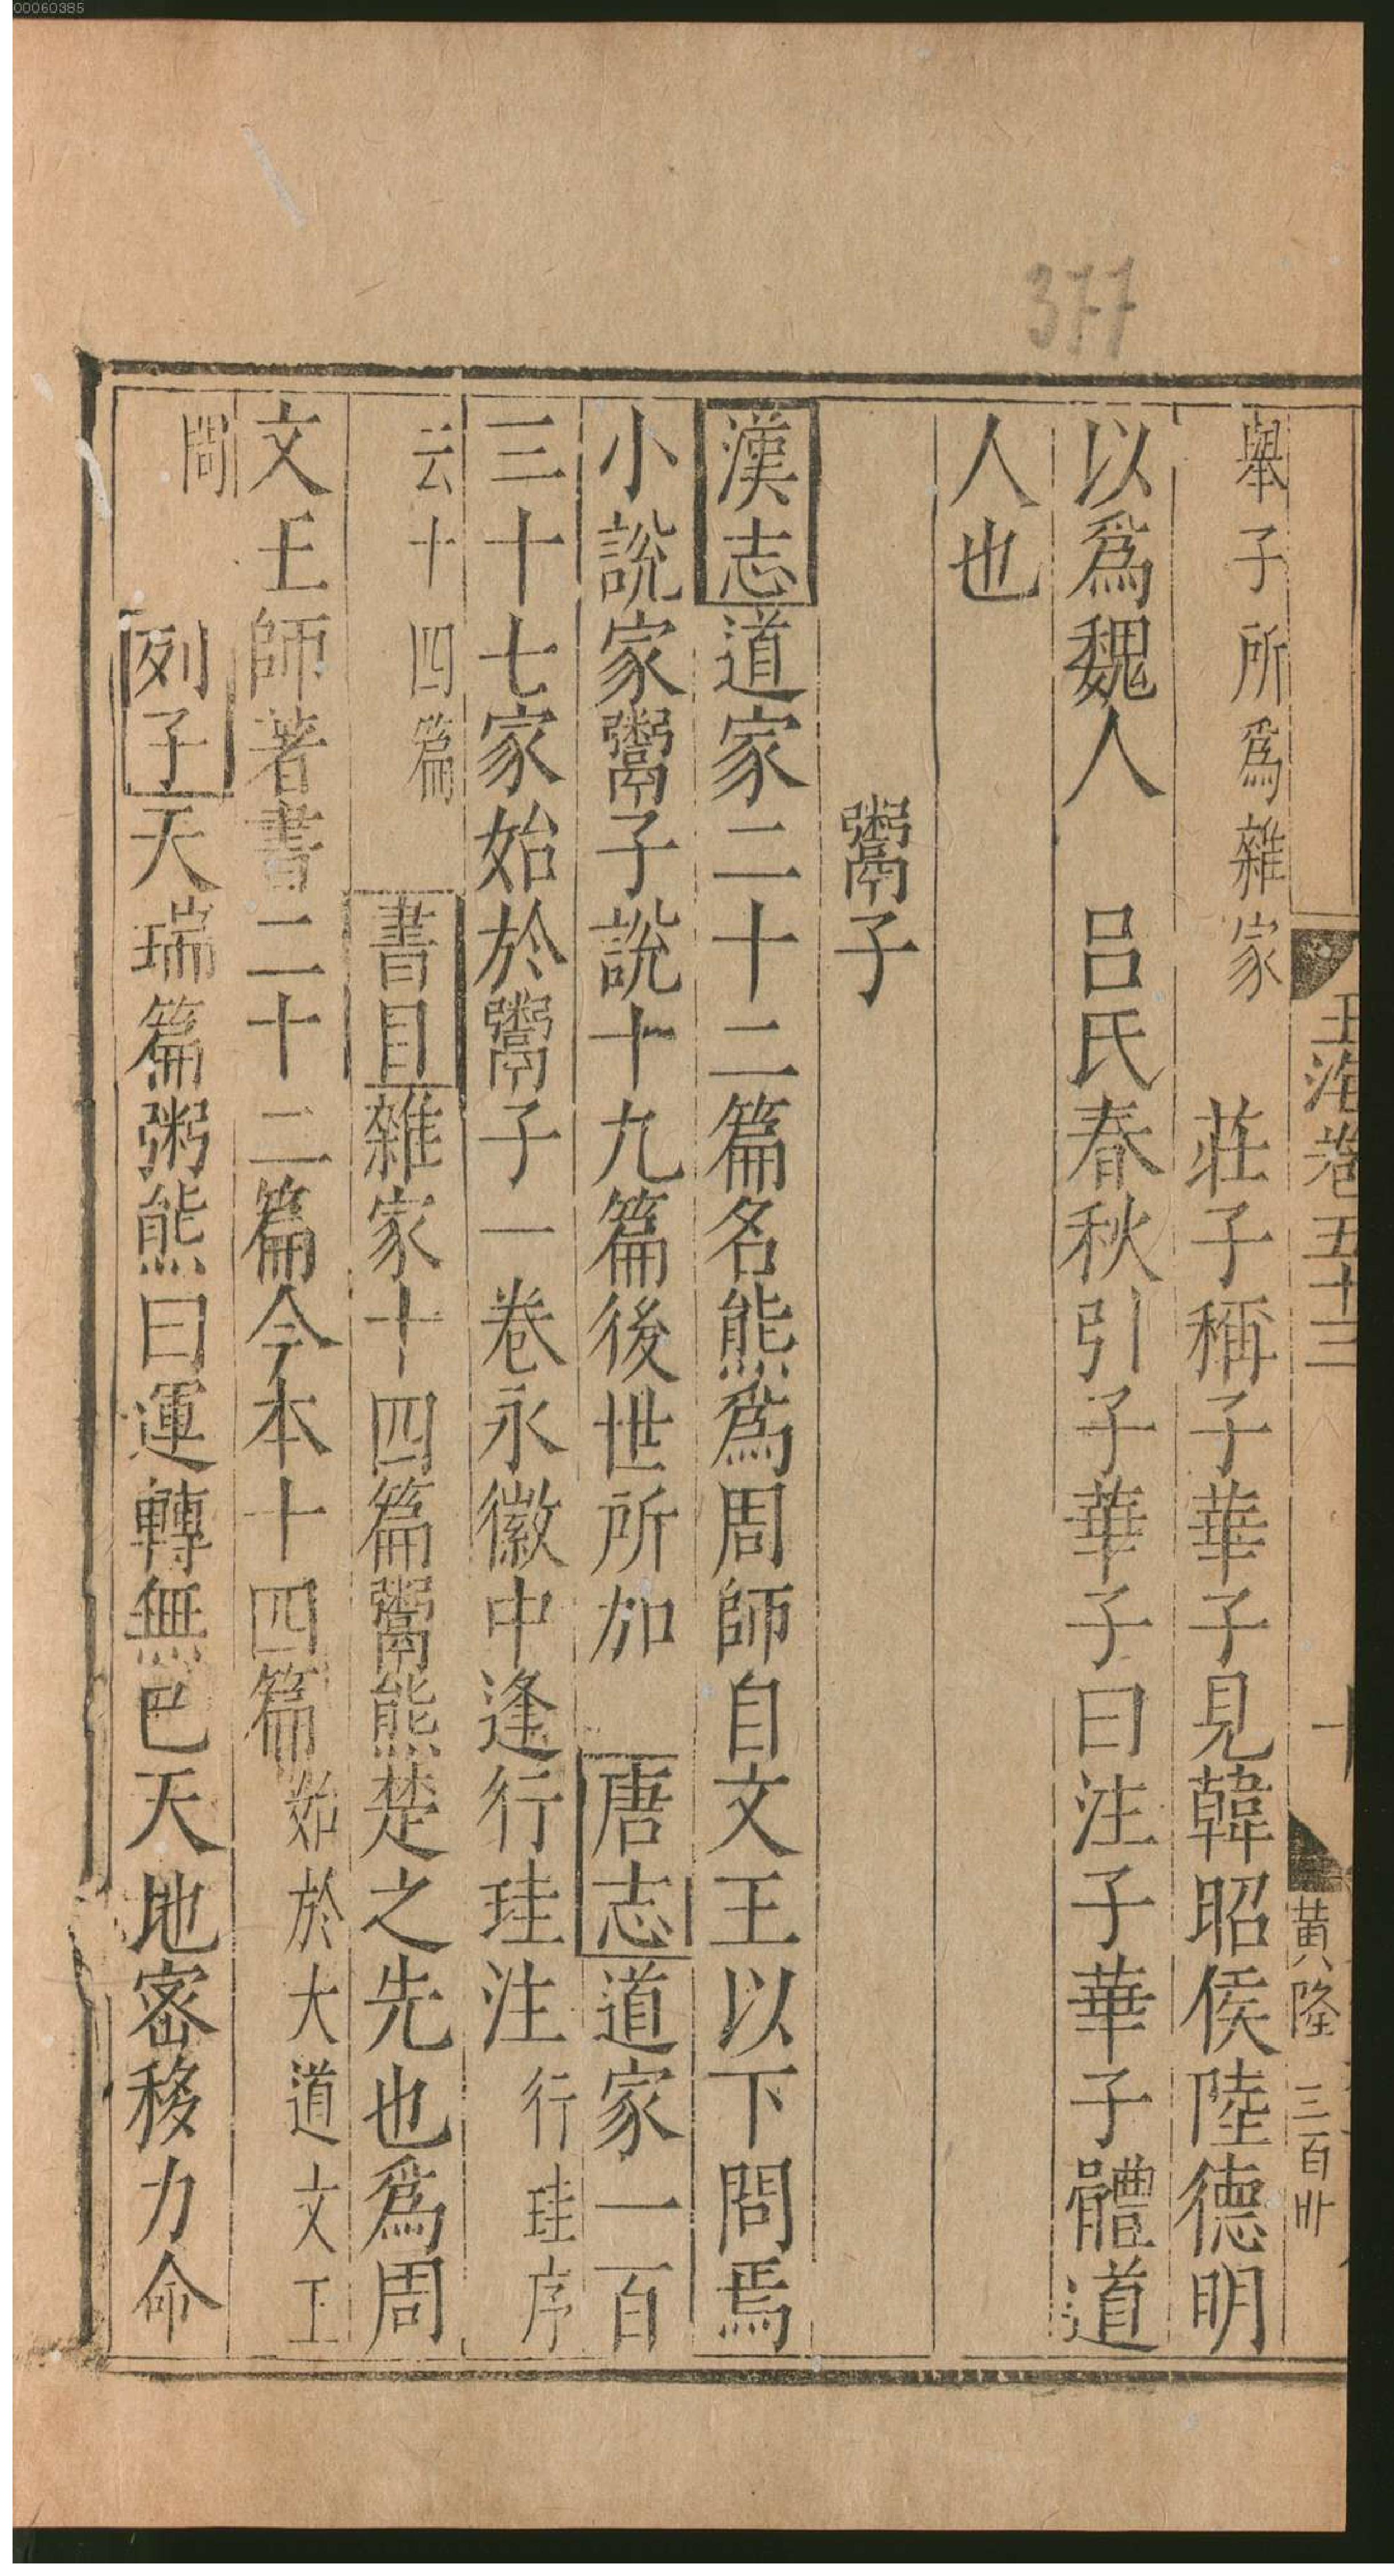 00060385
377
玉海卷五十三
一
黄隆
三百卅
舉子所爲雜家　莊子稱子華子見韓昭侯陸德明
以爲魏人　吕氏春秋引子華子曰注子華子體道
人也
鬻子
漢志道家二十二篇名熊爲周師自文王以下問焉
小說家鬻子說十九篇後世所加　唐志道家一百
三十七家始於鬻子一卷永徽中逢行珪注行珪序
云十四篇　書目雜家十四篇鬻熊楚之先也爲周
文王師著書二十二篇今本十四篇始於大道文王
問　列子天瑞篇粥熊曰運轉無已天地密移力命